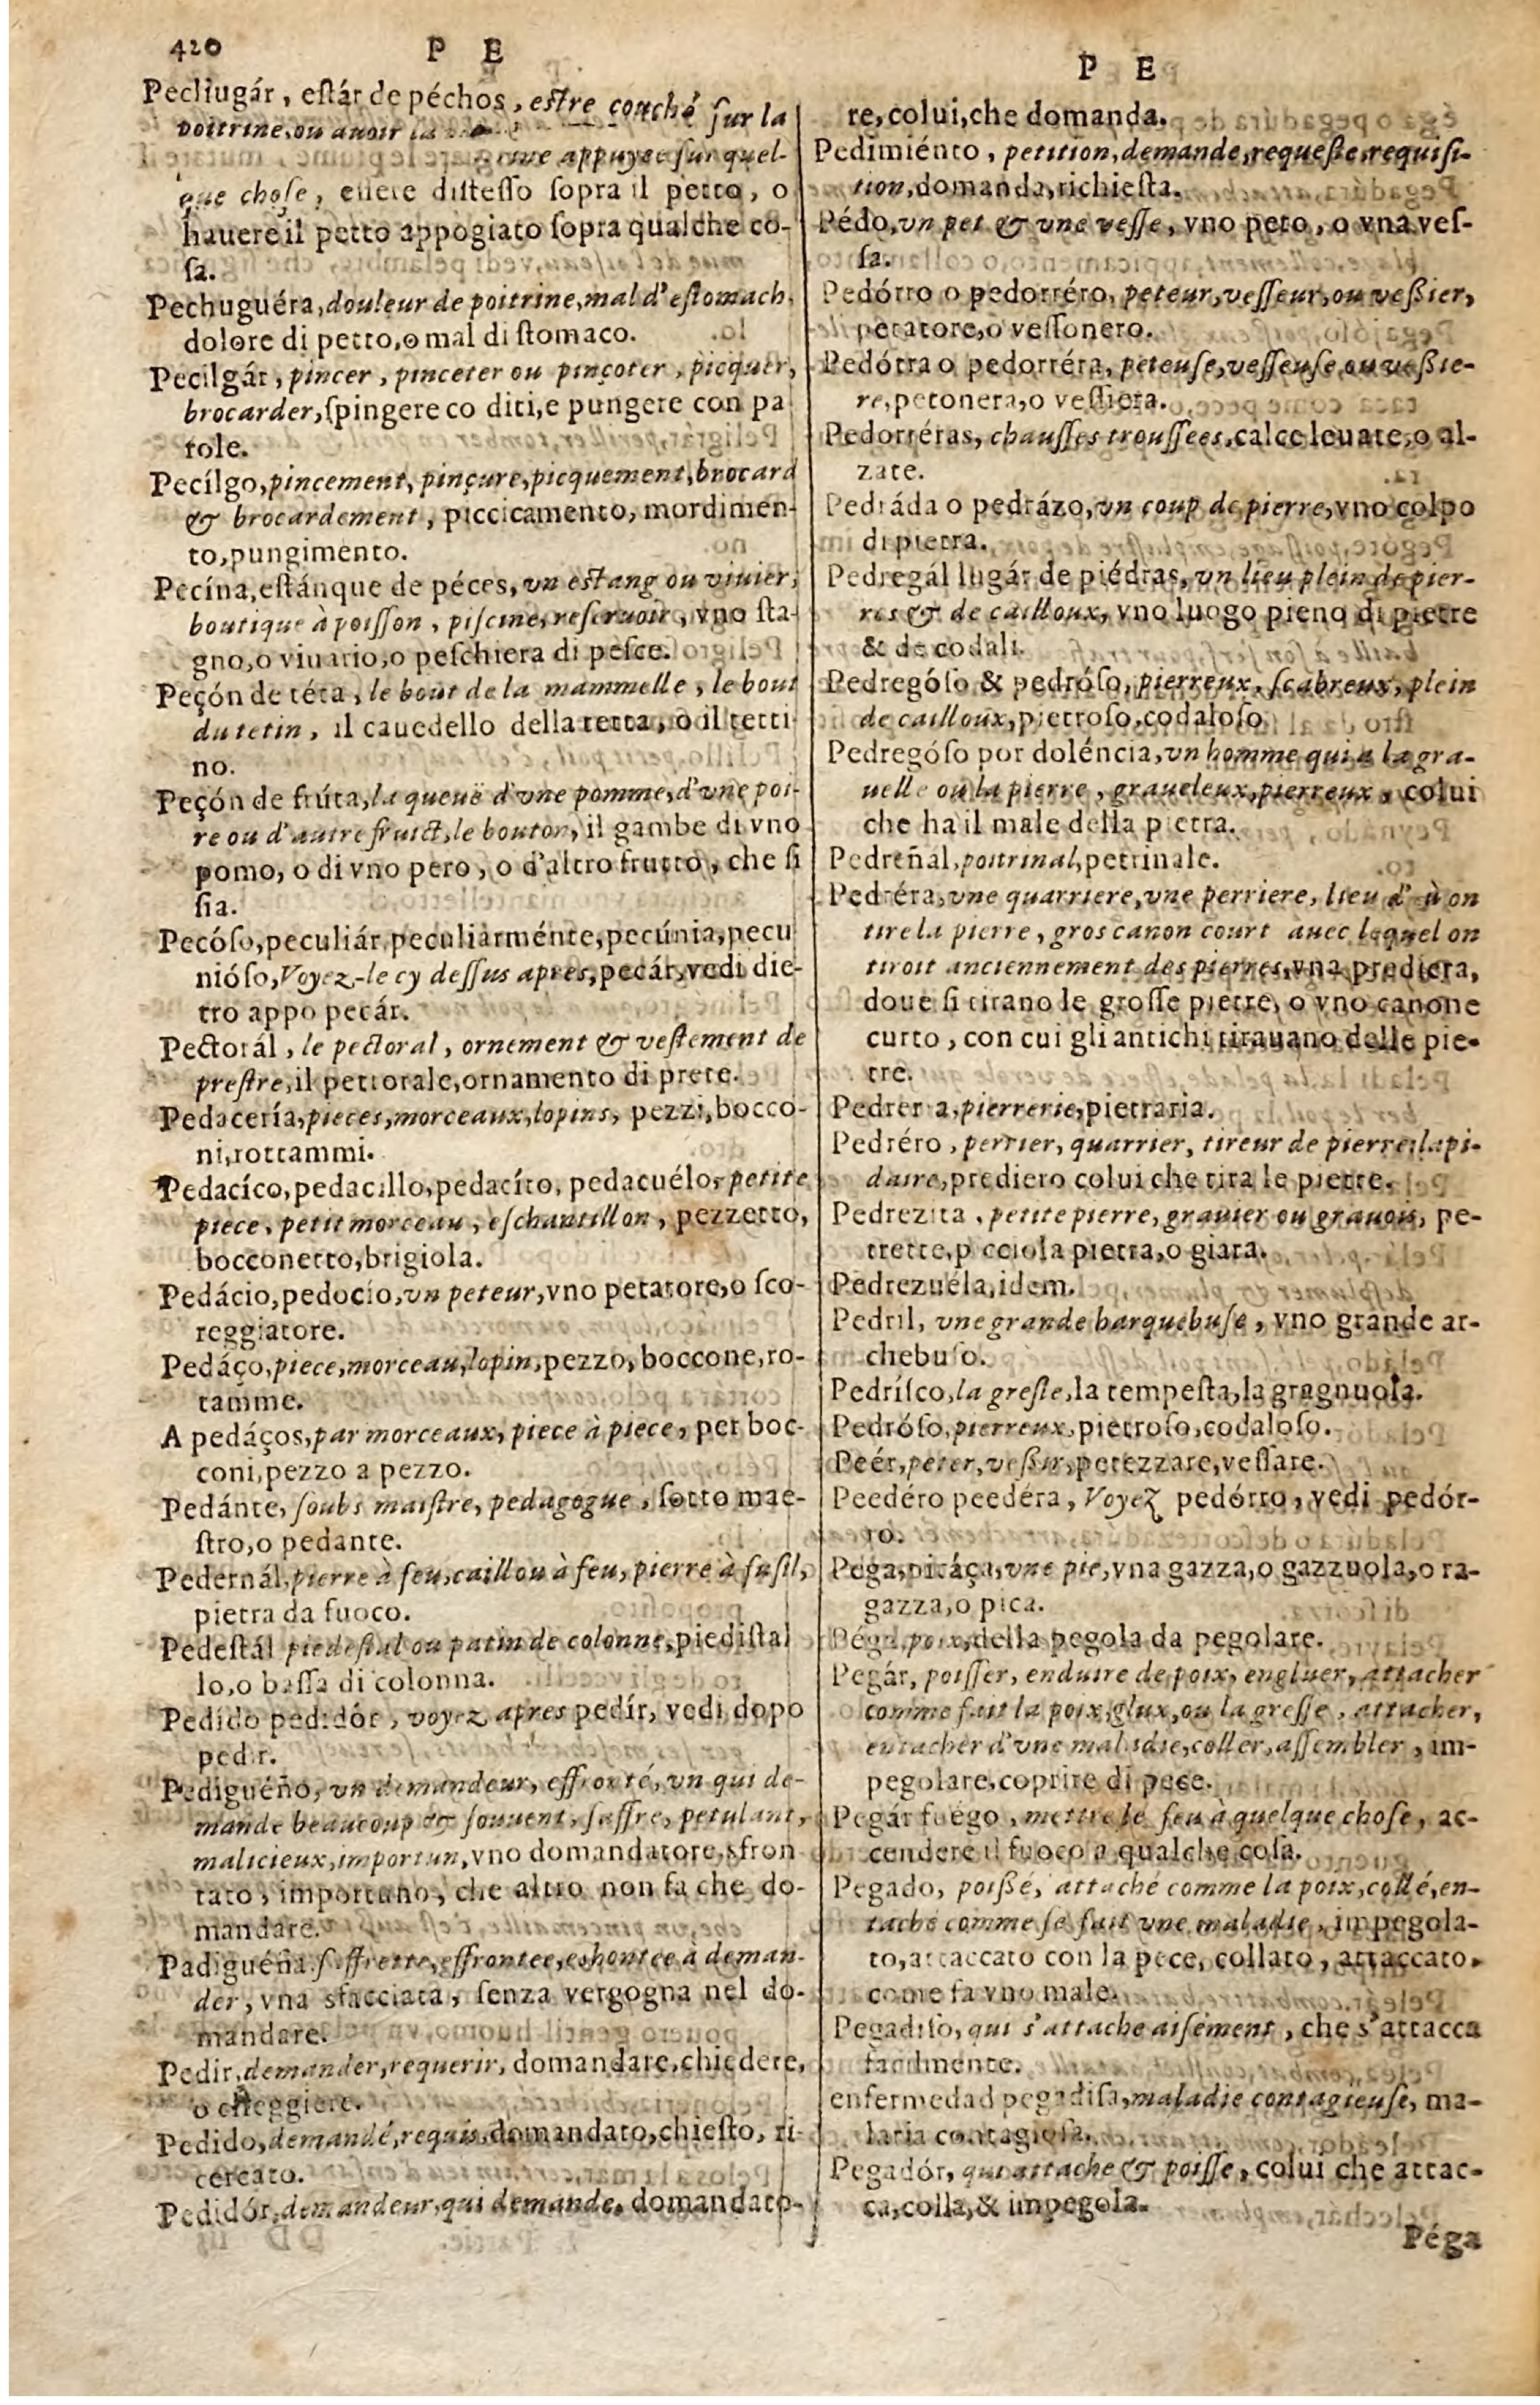 420
P E
Pechugár, eſtár de péchos, eſtre couché ſur la
poitrine, ou auoir la
appuyee ſur quel-
que choſe, eſſere diſteſſo ſopra il petto, o
hauere il petto appogiato ſopra qualche co-
ſa.
Pechuguéra, douleur de poitrine, mal d'eſtomach,
dolore di petto, o mal di ſtomaco.
Pecilgár, pincer, pinceter ou pinçoter, picquer,
brocarder, ſpingere co diti, e pungere con pa
role.
Pecílgo, pincement, pinçure, picquement, brocard
& brocardement, piccicamento, mordimen-
to, pungimento.
Pecína, eſtánque de péces, vn eſtang ou viuier,
boutique à poiſſon, piſcine, reſeruoir, vno ſta-
gno, o viuario, o peſchiera di peſce.
Peçón de téta, le bout de la mammelle, le bout
du tetin, il cauedello della tetta, o il tetti
no.
Peçón de frúta, la queuë d'vne pomme, d'vne poi-
re ou d'autre fruict, le bouton, il gambe di vno
pomo, o di vno pero, o d'altro frutto, che ſi
ſia.
Pecóſo, peculiár, peculiarménte, pecúnia, pecu
nióſo, Voyez-le cy deſſus apres, pecár, vedi die-
tro appo pecár.
Pectorál, le pectoral, ornement & veſtement de
preſtre, il pettorale, ornamento di prete.
Pedacería, pieces, morceaux, lopins, pezzi, bocco-
ni, rottammi.
Pedacíco, pedacillo, pedacíto, pedacuélo, petite
piece, petit morceau, eſchantillon, pezzetto,
bocconetto, brigiola.
Pedácio, pedocío, vn peteur, vno petatore, o ſco-
reggiatore.
Pedáço, piece, morceau, lopin, pezzo, boccone, ro-
tamme.
A pedáços, par morceaux, piece à piece, per boc-
coni, pezzo a pezzo.
Pedánte, ſoubs maiſtre, pedagogue, ſotto mae-
ſtro, o pedante.
Pedernál, pierre à feu, caillou à feu, pierre à fuſil,
pietra da fuoco.
Pedeſtál piedeſtal ou patin de colonne, piediſtal
lo, o baſſa di colonna.
Pedído pedidór, voyez apres pedír, vedi dopo
pedir.
Pediguéño, vn demandeur, effronté, vn qui de-
mande beaucoup & ſouuent, ſaffre, petulant,
malicieux, importun, vno domandatore, sfron
tato, importuno, che altro non fa che do-
mandare.
Padiguéña. ſaffrette, effrontee, eshontee à deman-
der, vna sfacciata, ſenza vergogna nel do-
mandare.
Pedir, demander, requerir, domandare, chiedere,
o
Pedido, demandé, requis, domandato, chieſto, ri-
cercato.
Pedidór, demandeur, qui demande, domandato-
P E
re, colui, che domanda.
Pedimiénto, petition, demande, requeſte, requiſi-
tion, domanda, richieſta.
Pédo, vn pet & vne veſſe, vno peto, o vna veſ-
ſa.
Pedórro o pedorréro, peteur, veſſeur, ou veßier,
petatore, o veſſonero.
Pedórra o pedorréra, peteuſe, veſſeuſe, ou veßie-
re, petonera, o veſſiera.
Pedorréras, chauſſes trouſſees, calce leuate, o al-
zate.
Pedráda o pedrázo, vn coup de pierre, vno colpo
di pietra.
Pedregál lugár de piédras, vn lieu plein de pier-
res & de cailloux, vno luogo pieno di pietre
& de codali.
Pedregóſo & pedróſo, pierreux, ſcabreux, plein
de cailloux, pietroſo, codaloſo.
Pedregóſo por doléncia, vn homme qui a la gra-
uelle ou la pierre, graueleux, pierreux, colui
che ha il male della pietra.
Pedreñal, poitrinal, pettinale.
Pedréra, vne quarriere, vne perriere, lieu d'où on
tire la pierre, gros canon court auec lequel on
tiroit anciennement des pierres, vna prediera,
doue ſi tirano le groſſe pietre, o vno canone
curto, con cui gli antichi tirauano delle pie-
tre.
Pedrer a, pierrerie, pietraria.
Pedréro, perrier, quarrier, tireur de pierre, lapi-
daire, prediero colui che tira le pietre.
Pedrezita, petite pierre, grauier ou grauois, pe-
trette, p cciola pietra, o giara.
Pedrezuéla, idem.
Pedril, vne grande harquebuſe, vno grande ar-
chebuſo.
Pedríſco, la greſle, la tempeſta, la gragnuola.
Pedróſo, pierreux, pietroſo, codaloſo.
Peér, peter, veßir, petezzare, veſſare.
Peedéro peedéra, Voyez pedórro, vedi pedór-
ro.
Pega, picáça, vne pie, vna gazza, o gazzuola, o ra-
gazza, o pica.
Péga, poix, della pegola da pegolare.
Pegár, poiſſer, enduire de poix, engluer, attacher
comme fait la poix, glux, ou la greſſe, attacher,
entacher d'vne maladie, coller, aſſembler, im-
pegolare, coprire di pece.
Pegár fuégo, mettre le feu à quelque choſe, ac-
cendere il fuoco a qualche coſa.
Pegado, poißé, attaché comme la poix, collé, en-
taché comme ſe fait vne maladie, impegola-
to, attaccato con la pece, collato, attaccato,
come fa vno male.
Pegadiſo, qui s'attache aiſément, che s'attacca
facilmente.
enfermedad pegadiſa, maladie contagieuſe, ma-
laria contagioſa.
Pegadór, qui attache & poiſſe, colui che attac-
ca, colla, & impegola.
Péga